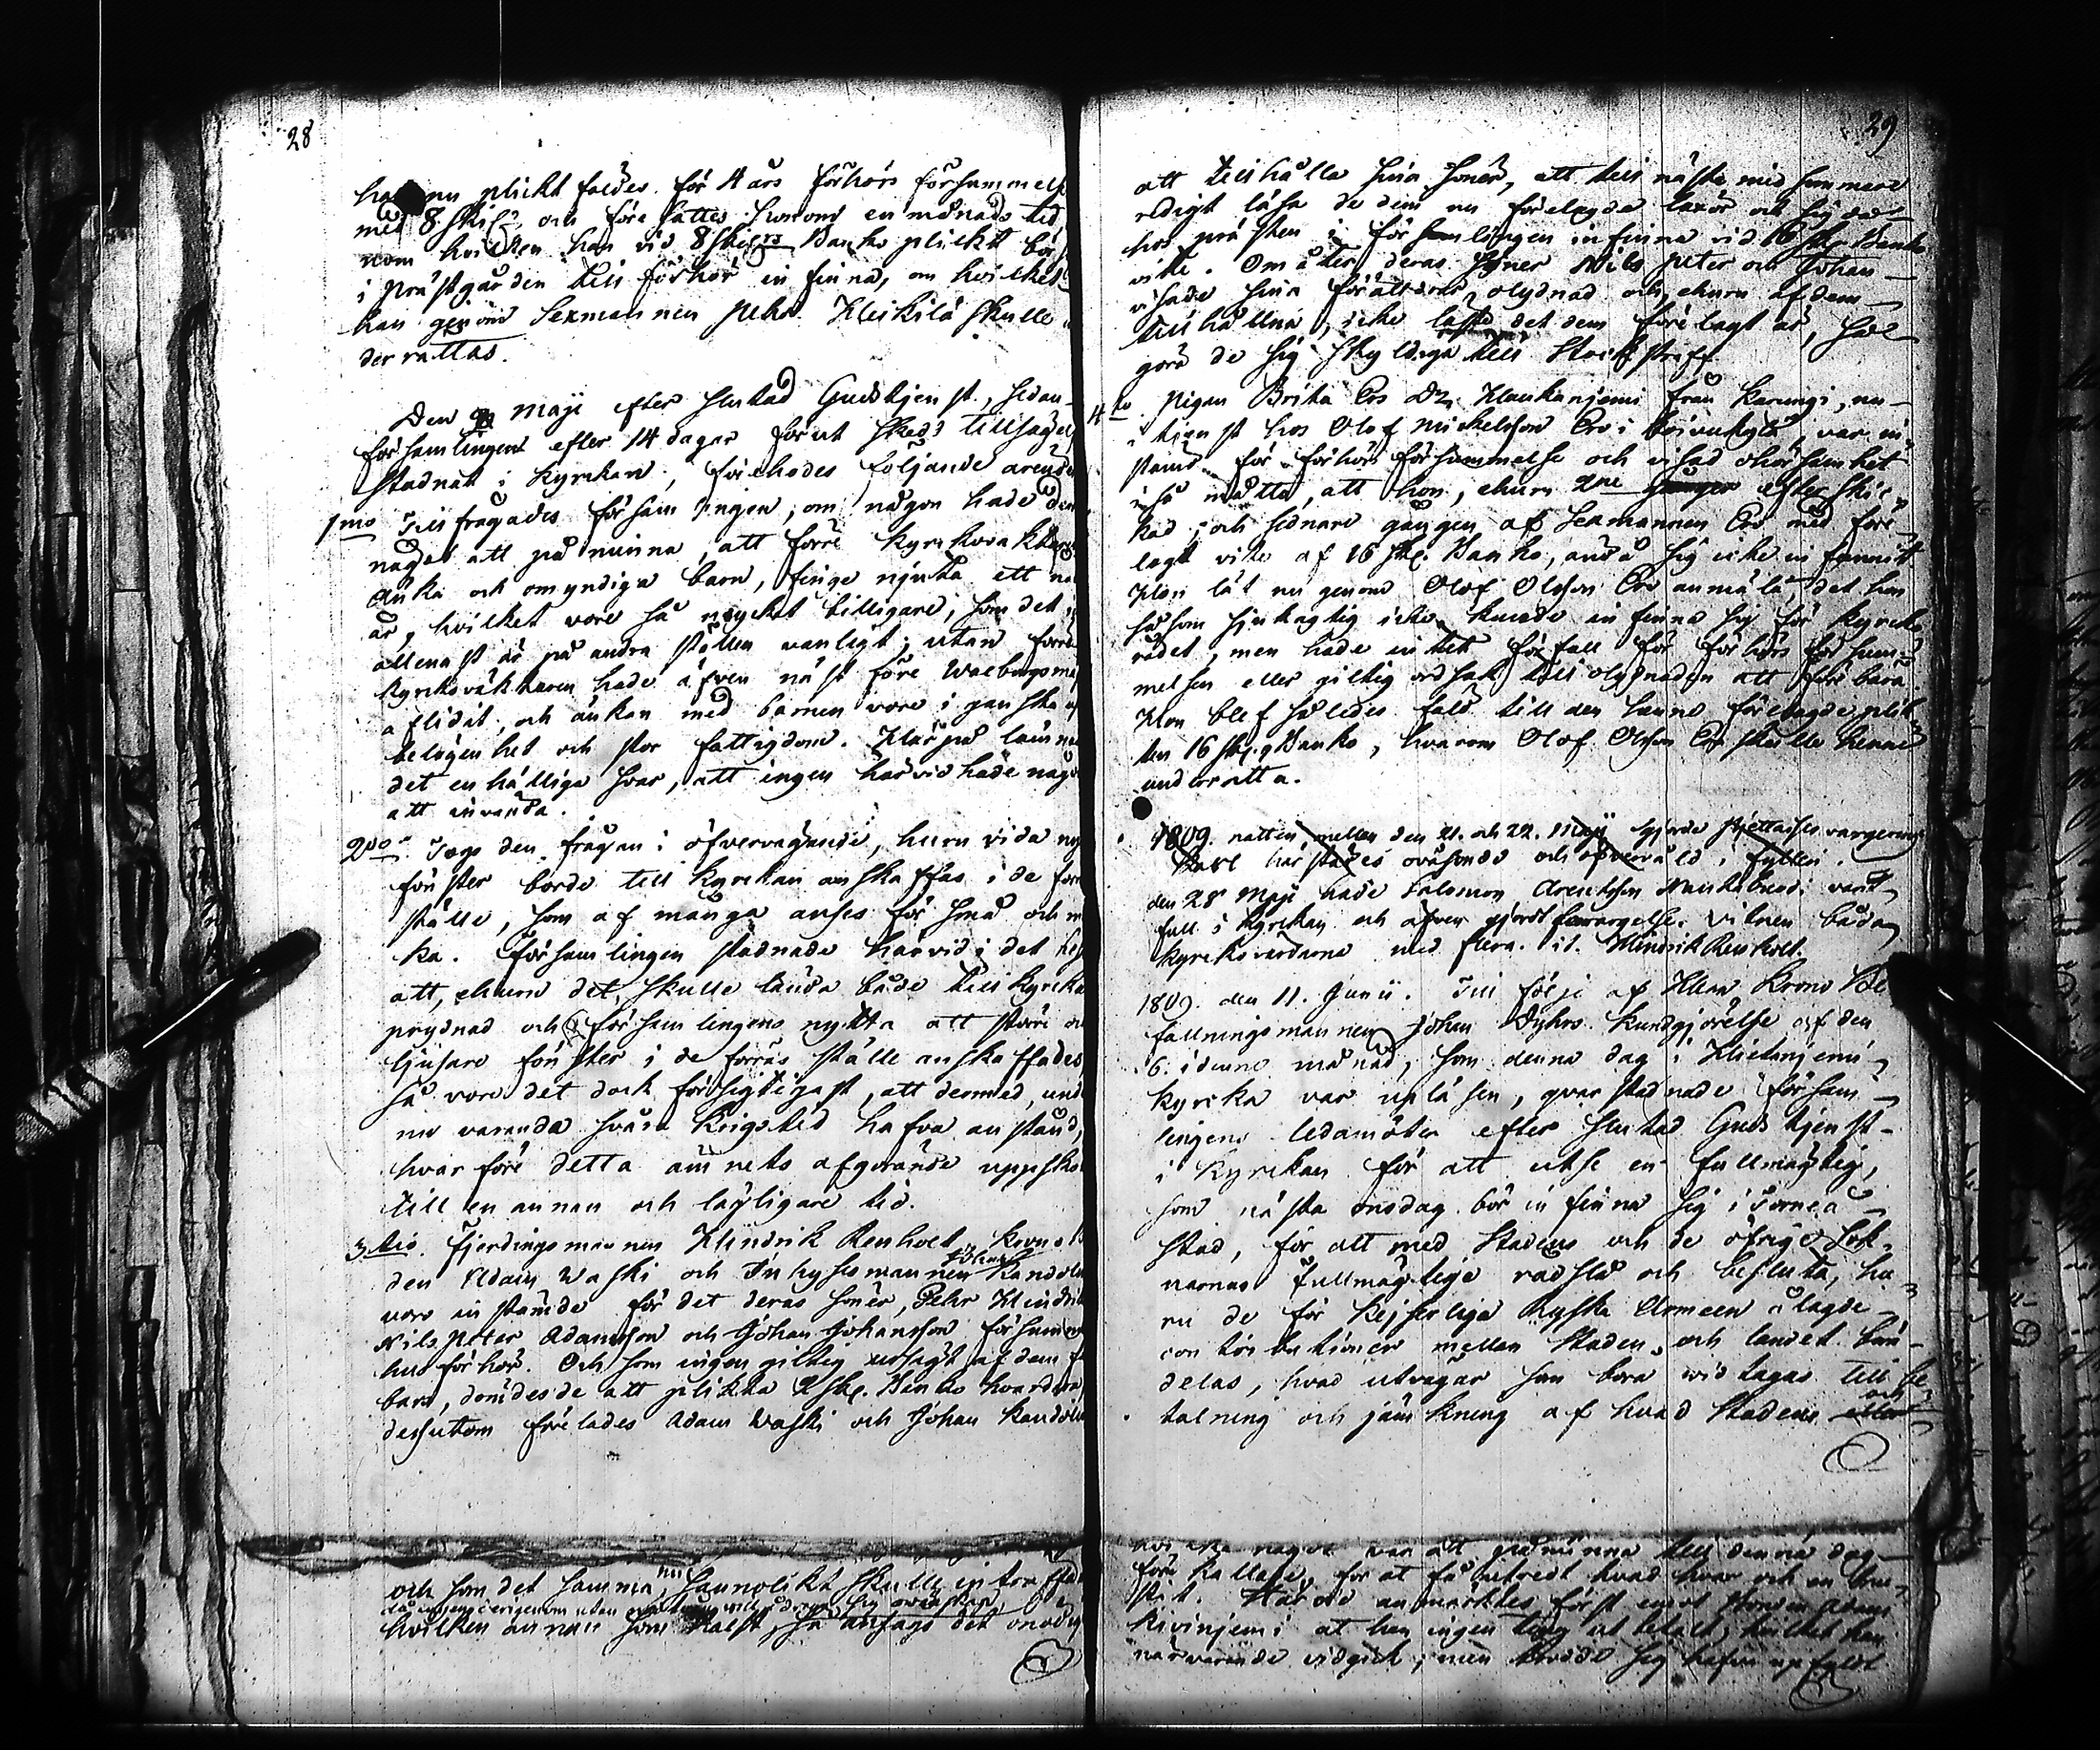 28
nu plikt fäldes för 4 års förhörs försummelse
med 8 skil. och före sattes honom en månads tid
nom hvilken han vid 8 skil. Banko plickt bör
i prästgården till förhör in finna, om hvilket
han genom Sexmannen Pehr Heikilä skulle
derrättas.
Den Maji efter slutad Gudstjenst, sedan
församlingen efter 14 dagar förut skedd tillsägelse
stadnat i Kyrkan, förehades följande ärenden
1mo Tillfrågades församlingen, om någon hade
något att påminna, att förre Kyrkovaktarens
Änka och omyndiga barn, finge njuta ett
år, hvilket vore så mycket billigare, som det
allenast är på andra ställen vanligt, utan förre
Kyrkoväktaren hade äfven näst före Walborgsmässa
aflidit, och änkan med barnen vore i ganska
belägenhet och stor fattigdom. Härpå lämnades
det enhälliga svar, att ingen härvid hade något
att invända.
2do Togs den frågan i öfvervägande, huru vida nya
fönster borde till Kyrkan anskaffas i de förras
ställe, som af många anses för små och
ka. Församlingen stadnade härvid i det
att, ehuru det skulle lända både till Kyrkans
prydnad och församlingens nytta att större och
ljusare fönster i de förras ställe anskaffades
så vore det dock försigtigast, att dermed, under
nu varande svåra Krigstid hafva anstånd,
hvarföre detta ämnets afgörande uppskots
till en annan och lägligare tid.
3tio Fjerdingsmannen Hindrik Renholt,
den Adam Waski och Inhysesmannen Johan Kandolin
voro instämde för det deras söner, Pehr Hindrik
Nils Peter Adamsson och Johan Johansson försummat
husförhör. Och som ingen giltig ursägt af dem
bars, dömdes de att plikta 8 sk. Banko hvardera
dessutom förelades Adam Waski och Johan Kandolin
och som det samma nu sannolikt skulle inträffa
hvilken annan som hälst, så ansågs det onödigt
29
att tillhålla sina söner, att till nästa midsommare
redigt läsa de dem nu förelagde läxor och sig der
hos prästen i församlingen infinna vid 16 sk. Banko
vite. Om åter deras söner Nils Peter och Johan
visade sina föräldrar olydnad och ehuru af dem
tillhållna, icke läste det dem förelagt är, så
göra de sig skyldiga till Stockstraff.
4to Pigan Brita Ers Dr. Haukanjemi från Karungi, nu
i tjenst hos Olof Mickelsson Ero i Koivukylä, var in
stämd för förhörs försummelse och visad ohörsamhet
i så måtto, att hon, ehuru 2ne gånger efter skic
kad, och sednare gången af Sexmannen Ero med före
lagt vite af 16 sk. Banko, ändå sig icke in funnit
Hon lät nu genom Olof Olsson Ero anmäla, det hon
såsom sjuklig icke kunde infinna sig för Kyrko
rådet, men hade intet förfall för förhörs försum
melsen eller giltig orsak till olydnaden att förebära
Hon blef således fäld till den henne förelagde plik
ten 16 sk. Banko, hvarom Olof Olsson Ero skulle henne
underrätta.
1809. natten mellan den 21. och 22. Maji gjorde
här städes oväsende och öfvervåld i fylleri.
den 28 Maji hade Salomon Arentsson varit
full i Kyrkan och äfven gjort förargelse. Vitnen båda
Kyrkovärdarna med flera. it. Hindrik Renholt.
1809. den 11. Junii. Till följe af Herr Krono Be
fallningsmannen Johan Dyhrs kundgjörelse af den
6. i denne månad, som denna dag i Hietanjemi
Kyrka var upläsen, qvar stadnade försam
lingens Ledamöter efter slutad Gudstjenst
i Kyrkan för att utse en fullmägtig,
som nästa onsdag bör in finna sig i Torneå
stad, för att med Stadens och de öfrige Sok
narnas fullmägtige rådslå och besluta, hu
ru de för Kejserliga Ryska Armeen ålagde
contributioner mellan Staden och landet böra
delas, hvad utvägar som böra vidtagas till be
talning och jämkning af hvad Staden och eller
något var att påminna till denna dag
före kallade, för at få utredt hvad hvar och en
Härvid anmärktes först emot Adam
Kivinjemi at han ingen ting ut betalt, hvilket han
närvarande vidgick, men trodde sig hafva upfyldt